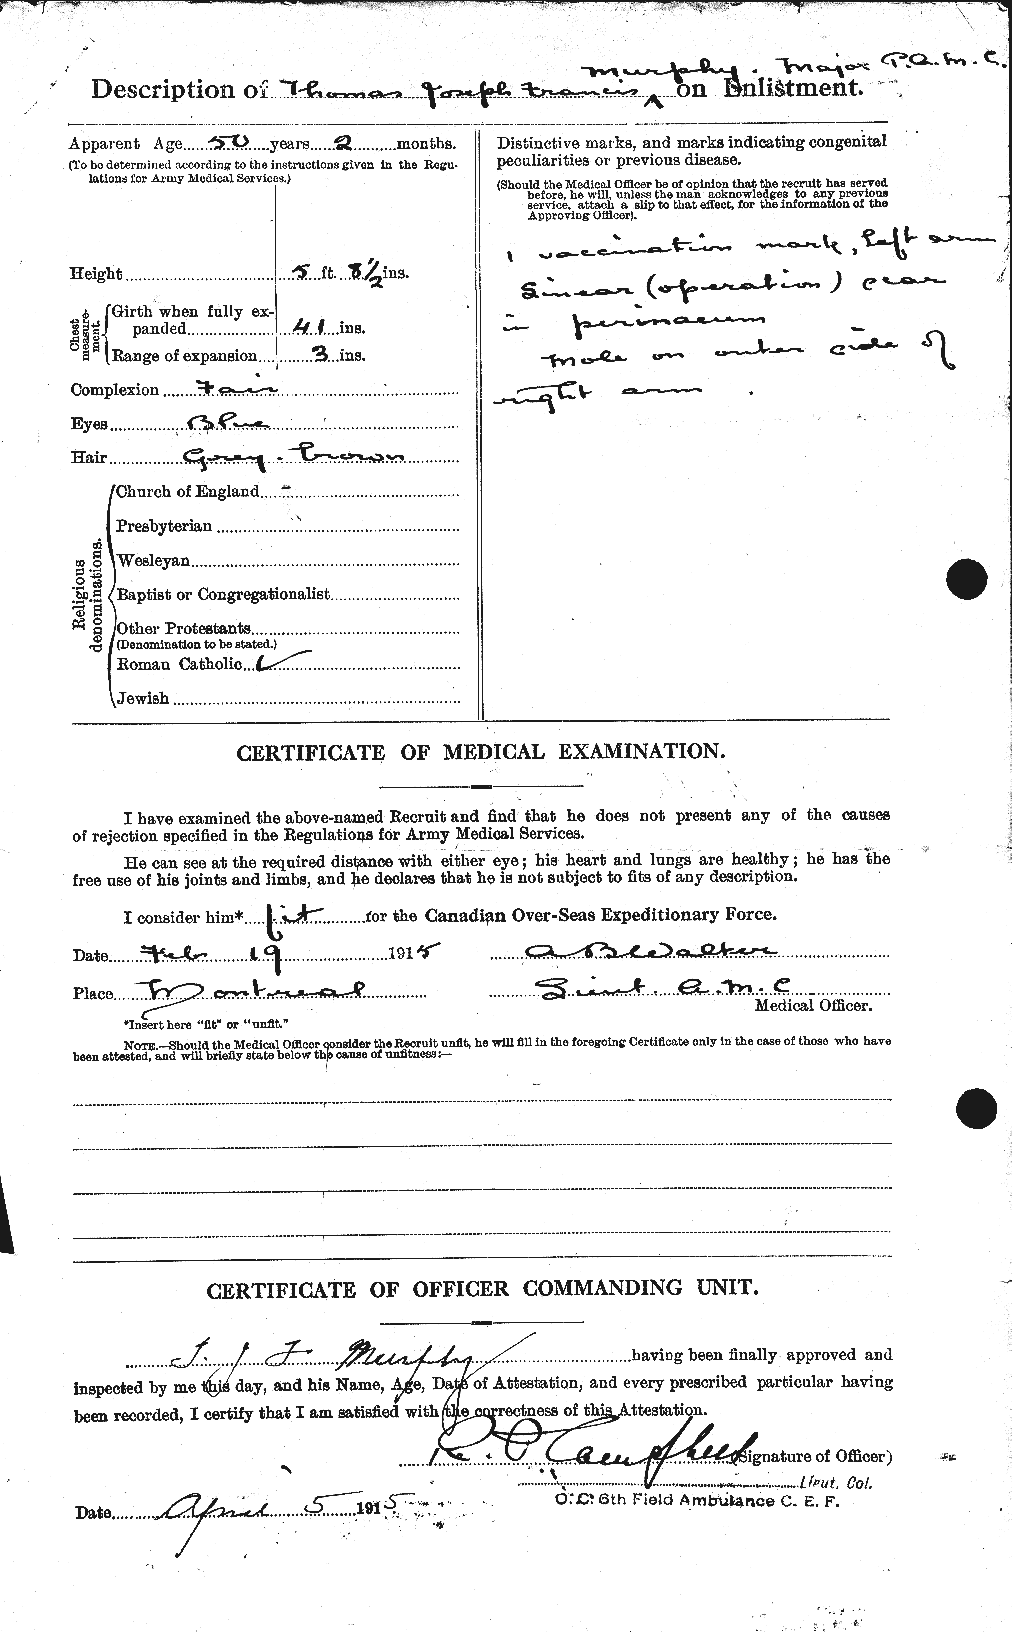 Murphy. Major P.A.M.C.
Description of Thomas Joseph Francis on Enlistment.
Apparent Age 50 years 2 months.
(To be determined according to the instructions given in the Regu-
lations for Army Medical Services.)
Height 5 ft. 8½ ins.
Chest measure-ment.
Girth when fully ex-
panded 41 ins.
Range of expansion 3 ins.
Complexion Fair
Eyes Blue
Hair Grey-brown
Religious denominations.
Church of England
Presbyterian
Wesleyan
Baptist or Congregationalist
Other Protestants
(Denomination to be stated.)
Roman Catholic ✓
Jewish
Distinctive marks, and marks indicating congenital
peculiarities or previous disease.
(Should the Medical Officer be of opinion that the recruit has served
before, he will, unless the man acknowledges to any previous
service, attach a slip to that effect, for the information of the
Approving Officer).
1 vaccination mark, left arm
Linear (operation) scar
in perinaeum
Mole on outer side of
right arm.
CERTIFICATE OF MEDICAL EXAMINATION.
I have examined the above-named Recruit and find that he does not present any of the causes
of rejection specified in the Regulations for Army Medical Services.
He can see at the required distance with either eye; his heart and lungs are healthy; he has the
free use of his joints and limbs, and he declares that he is not subject to fits of any description.
I consider him* fit for the Canadian Over-Seas Expeditionary Force.
Date Feb 19 1915 A B Walter
Place Montreal Lieut. A.M.C
Medical Officer.
*Insert here "fit" or "unfit."
NOTE.—Should the Medical Officer consider the Recruit unfit, he will fill in the foregoing Certificate only in the case of those who have
been attested, and will briefly state below the cause of unfitness:—
CERTIFICATE OF OFFICER COMMANDING UNIT.
T. J F Murphy having been finally approved and
inspected by me this day, and his Name, Age, Date of Attestation, and every prescribed particular having
been recorded, I certify that I am satisfied with the correctness of this Attestation.
R. P Campbell (Signature of Officer)
Lieut. Col.
O.C. 6th Field Ambulance C. E. F.
Date April 5 1915